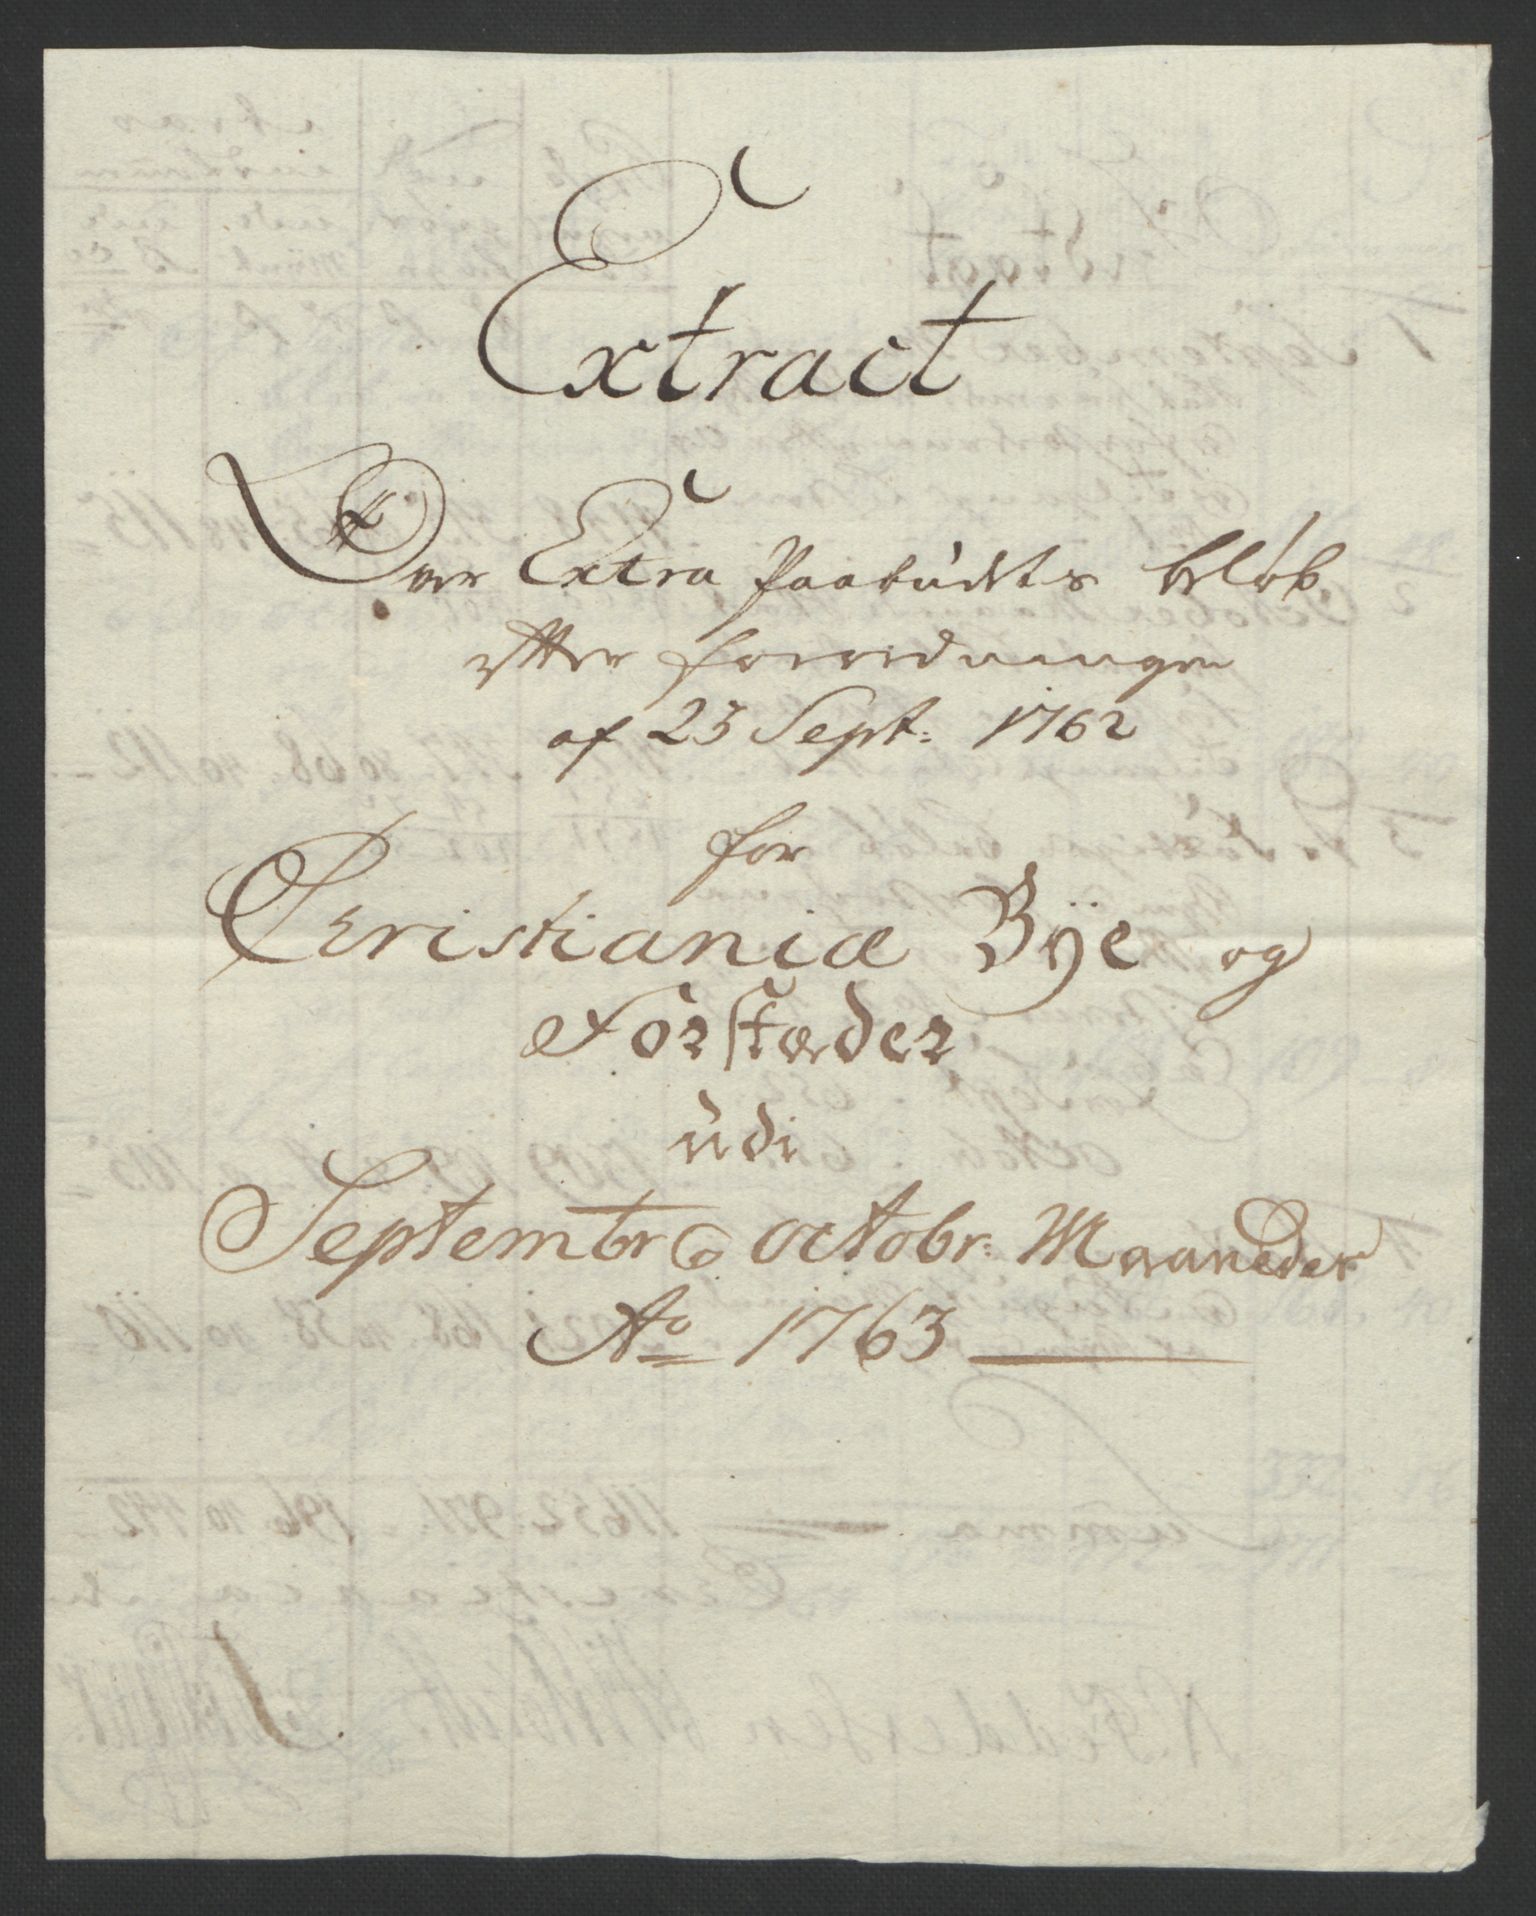 Extract
Over Extra Paabudets beløb
efter forordningen
af 23 Sept: 1762
for
Christianiæ Bÿe og
Forstæder
udi
Septembr & Octobr: Maaneder
Ao 1763